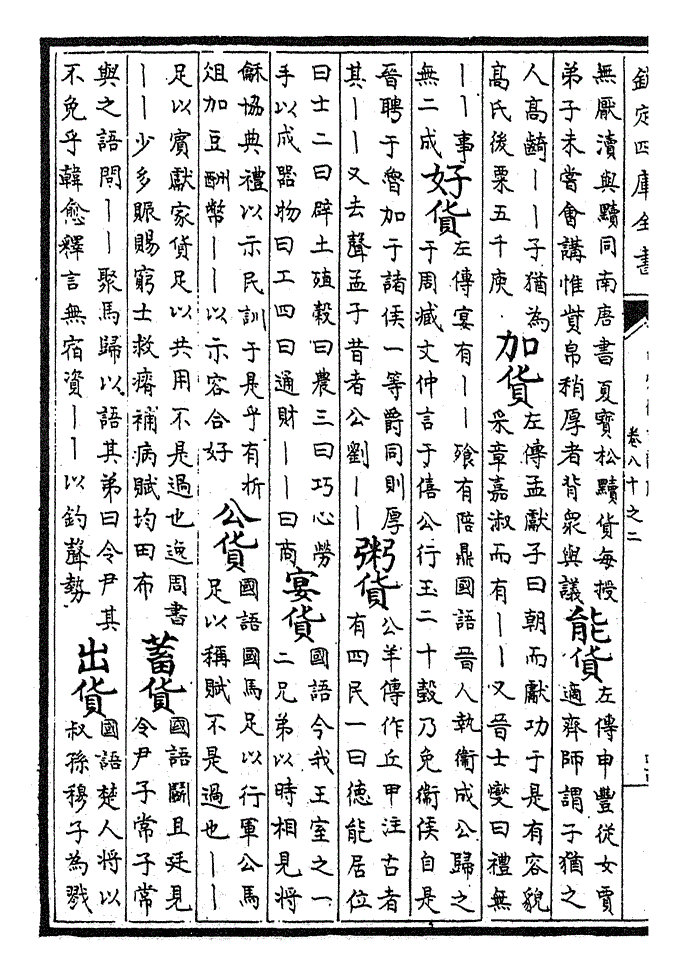 欽定四庫全書
卷八十之二
無厭瀆與黷同南唐書夏寶松黷貨每授
弟子未嘗會講惟貲帛稍厚者背衆與議
能貨
左傳申豐從女賈
適齊師謂子猶之
人高齮||子猶為
高氏後粟五千庾
加貨
左傳孟獻子曰朝而獻功于是有容貌
采章嘉淑而有||又晉士燮曰禮無
||事
無二成
好貨
左傳宴有||飧有陪鼎國語晉人執衛成公歸之
于周臧文仲言于僖公行玉二十瑴乃免衛侯自是
晉聘于魯加于諸侯一等爵同則厚
其||又去聲孟子昔者公劉||
粥貨
公羊傳作丘甲注古者
有四民一曰德能居位
曰士二曰辟土殖穀曰農三曰巧心勞
手以成器物曰工四曰通財||曰商
宴貨
國語今我王室之一
二兄弟以時相見將
龢協典禮以示民訓于是乎有折
俎加豆酬幣||以示容合好
公貨
國語國馬足以行軍公馬
足以稱賦不是過也||
足以賓獻家貨足以共用不是過也逸周書
||少多賑賜窮士救瘠補病賦均田布
蓄貨
國語鬬且廷見
令尹子常子常
與之語問||聚馬歸以語其弟曰令尹其
不免乎韓愈釋言無宿資||以釣聲勢
出貨
國語楚人將以
叔孫穆子為戮